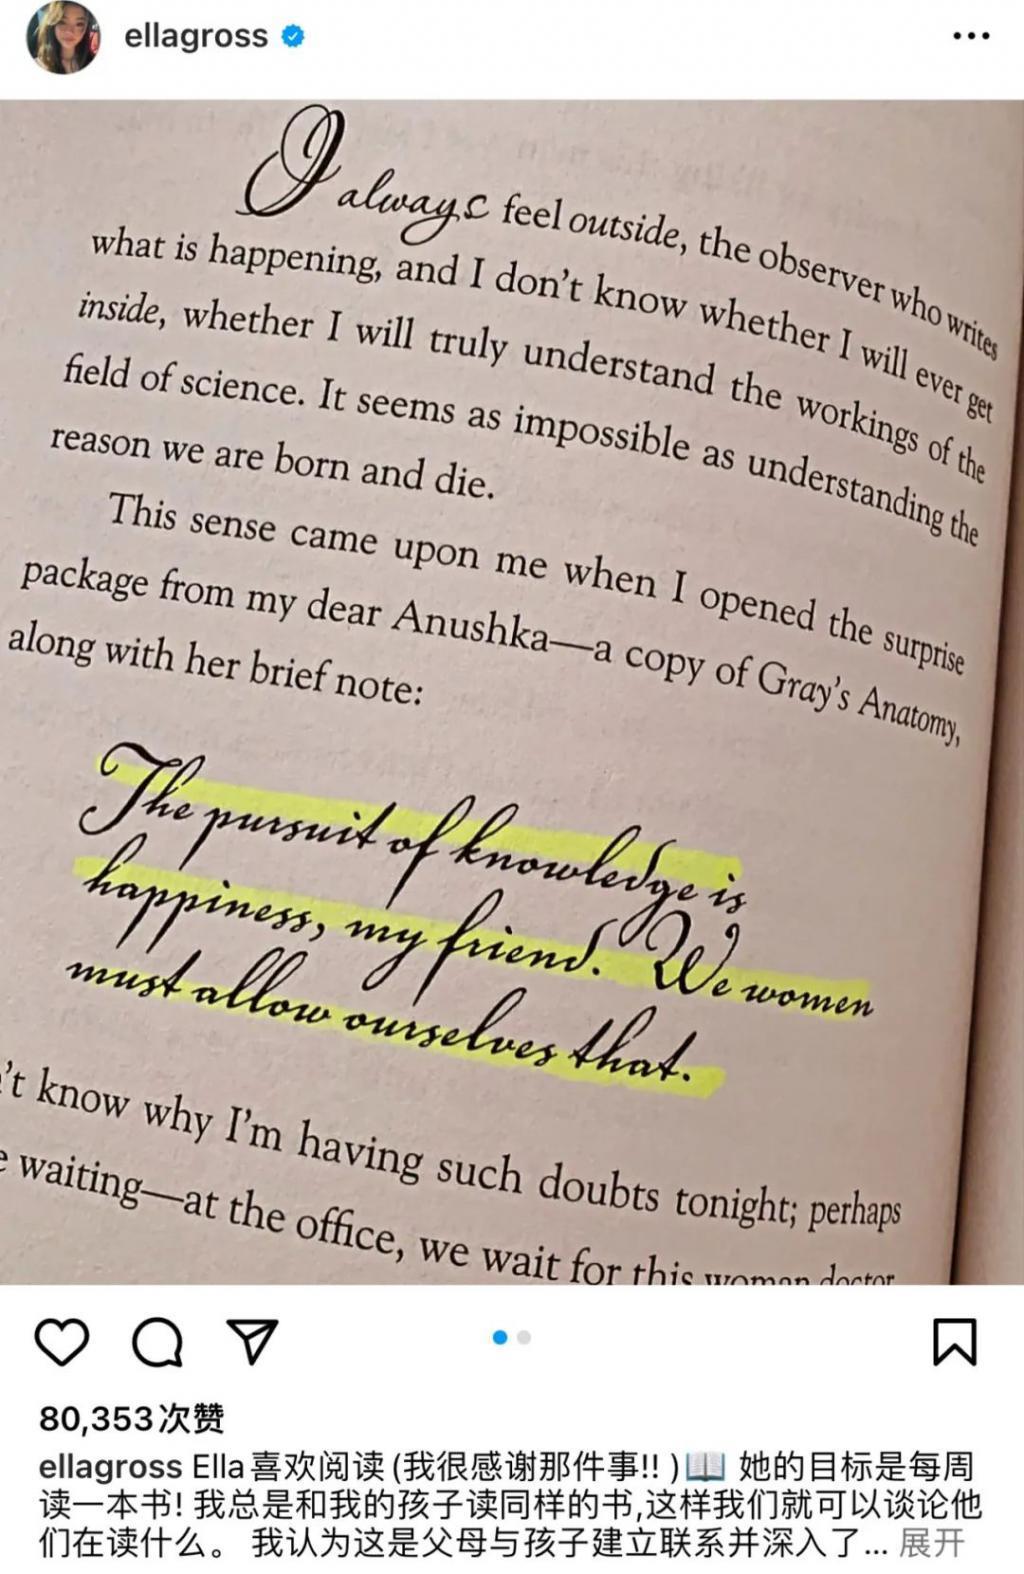 ellagross
I always feel outside, the observer who writes
what is happening, and I don't know whether I will ever get
inside, whether I will truly understand the workings of the
field of science. It seems as impossible as understanding the
reason we are born and die.
This sense came upon me when I opened the surprise
package from my dear Anushka—a copy of Gray's Anatomy,
along with her brief note:
The pursuit of knowledge is
happiness, my friend. We women
must allow ourselves that.
't know why I'm having such doubts tonight; perhaps
e waiting—at the office, we wait for this woman doctor
80,353次赞
ellagross Ella喜欢阅读 (我很感谢那件事!! )📖 她的目标是每周
读一本书! 我总是和我的孩子读同样的书,这样我们就可以谈论他
们在读什么。 我认为这是父母与孩子建立联系并深入了... 展开